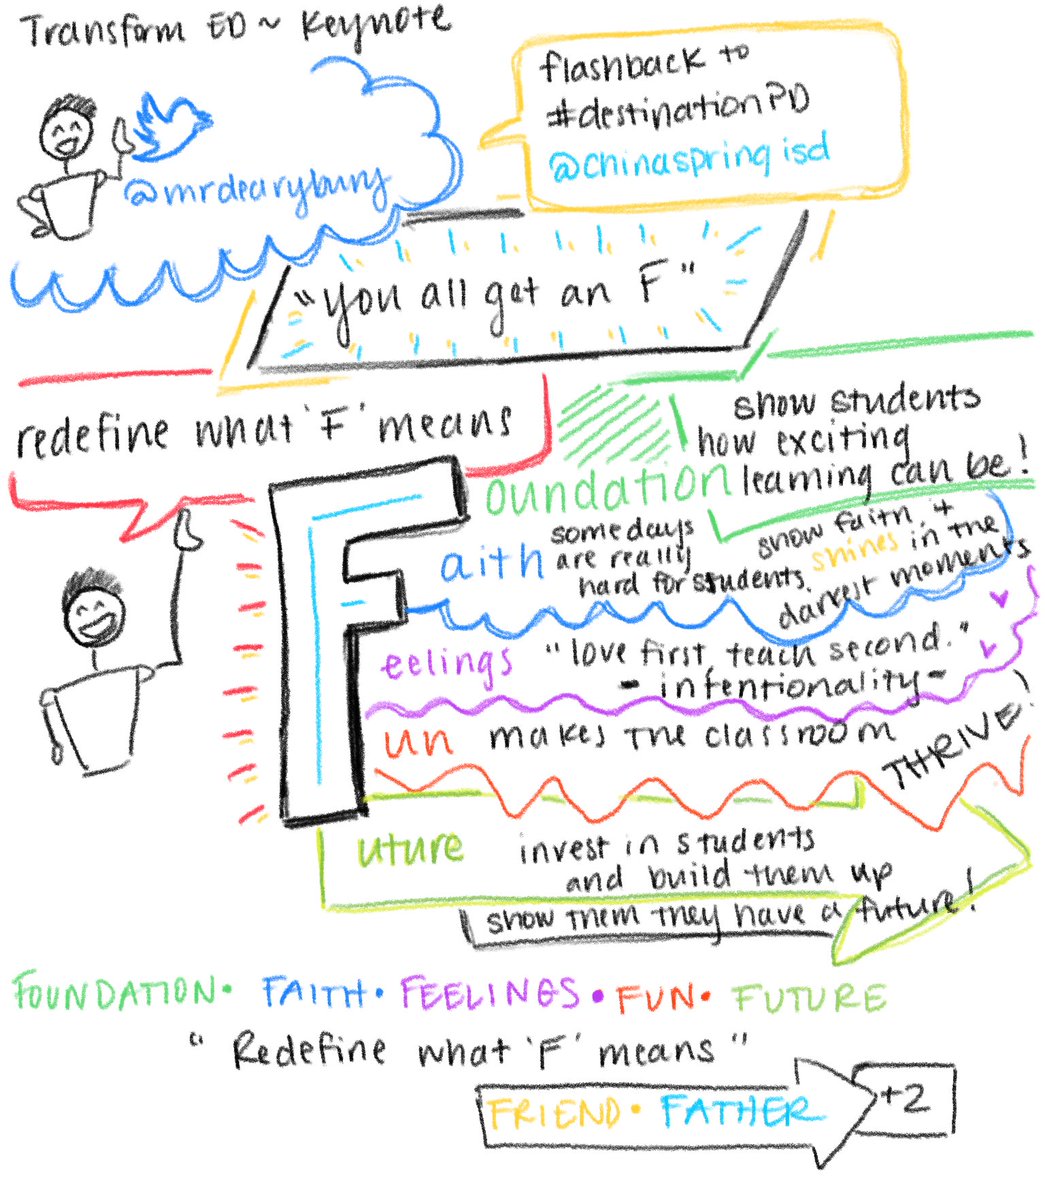 Transform ED ~ Keynote
@mrdearybury
flashback to
#destinationPD
@chinaspringisd
"you all get an F"
redefine what 'F' means
F
oundation
show students
how exciting
learning can be!
aith
some days
are really
hard for students.
show faith, it
shines in the
darkest moments
eelings
"love first, teach second."
- intentionality -
un makes the classroom
THRIVE!
uture
invest in students
and build them up
show them they have a future!
FOUNDATION • FAITH • FEELINGS • FUN • FUTURE
"Redefine what 'F' means"
FRIEND • FATHER +2